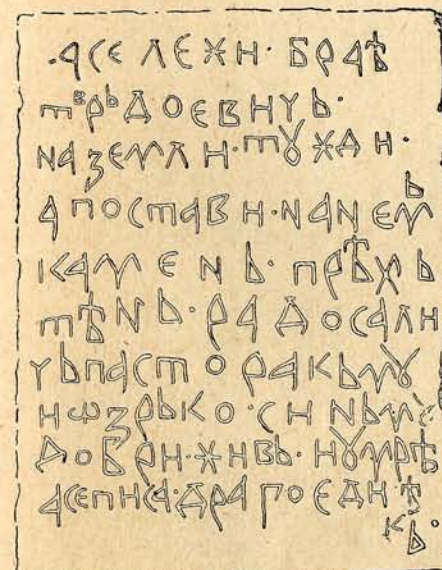 ·АСЕ ЛЕЖИ· БРАѢ
ТВРЬДОЕВИЧЬ·
НАЗЕМЛИ·ТꙊЖДИ·
АПОСТАВИ·НАНЕМЬ
КАМЕНЬ·ПРѢХЬ
ТѢНЬ·РАДОСАЛИ
ЧЬПАСТОРАКЬМꙊ
ИѠЗРЬКО·СИНЬМꙊ
ДОБРИ·ЖИВЬ·ИꙊМРѢ
АСЕПИСА·ДРАГОЕДИѢ
КЬ·